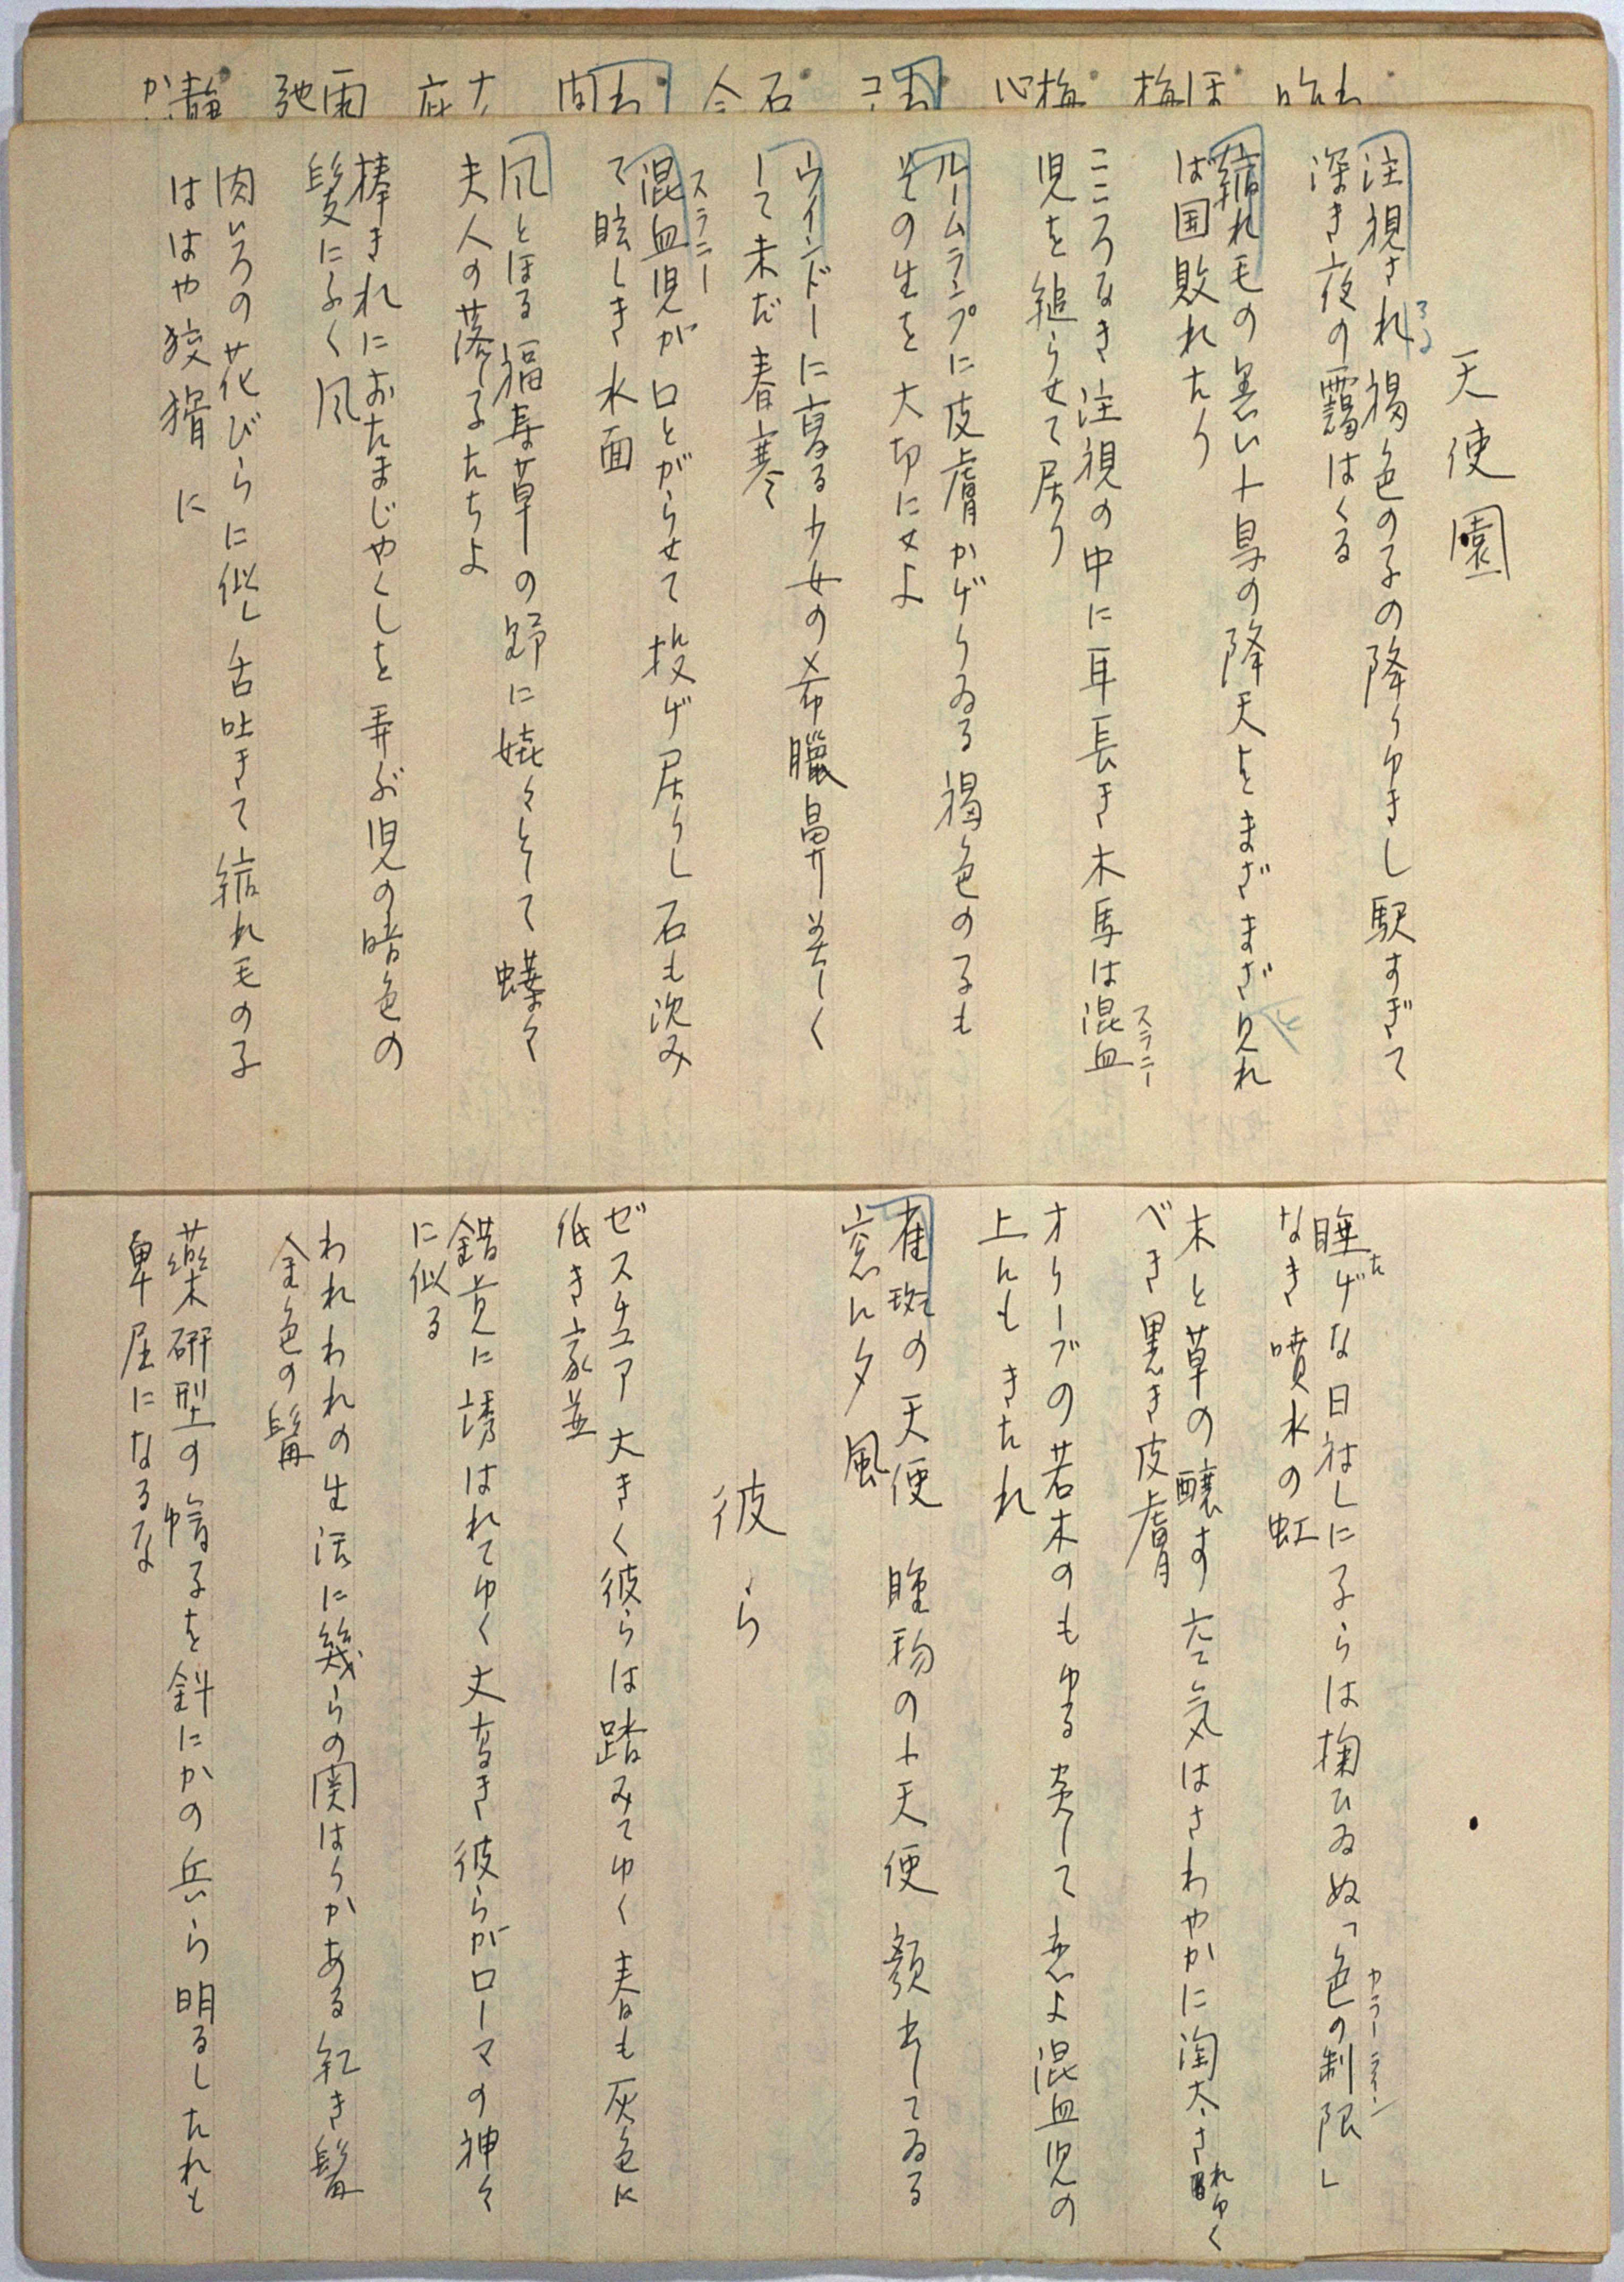 天使園
注視され褐色の子の降りゆきし駅すぎて
るる
深き夜の靄はくる
縮れ毛の黒い小鳥の降天をまざまざ見れ
ば国敗れたり
こころなき注視の中に耳長き木馬は混血
スラニー
児を縋らせて居り
ルームランプに皮膚かげりゐる褐色のるも
その生を大切にせよ
ウインドーに寫る少女の希臘鼻美しく
して未だ春寒く
スラニー
混血児が口とがらせて投げ居りし石も沈み
て眩しき水面
風とほる福寿草の野に嬈々として蝶々
夫人の落子たちよ
棒きれにおたまじやくしを弄ぶ児の暗色の
髪にふく風
肉いろの花びらに似し舌吐きて縮れ毛の子
ははや狡猾に
睡げな日射しに子らは掬ひゐぬ「色の制限」
た
カラーライン
なき噴水の虹
木と草の醸す空気はさわやかに淘太されゆく
べき黒き皮膚
オリーブの若木のもゆる炎して恋よ混血児の
上にもきたれ
雀斑の天使 瞳物の小天使 顔出してゐる
窓に夕風
彼ら
ゼスチュア大きく彼らは踏みてゆく春も灰色に
低き家並
錯覚に誘はれてゆく丈高き彼らがローマの神々
に似る
われわれの生活に幾らの関はりかある紅き髯
金色の髯
薬研型の帽子を斜にかの兵ら明るしたれも
卑屈になるな